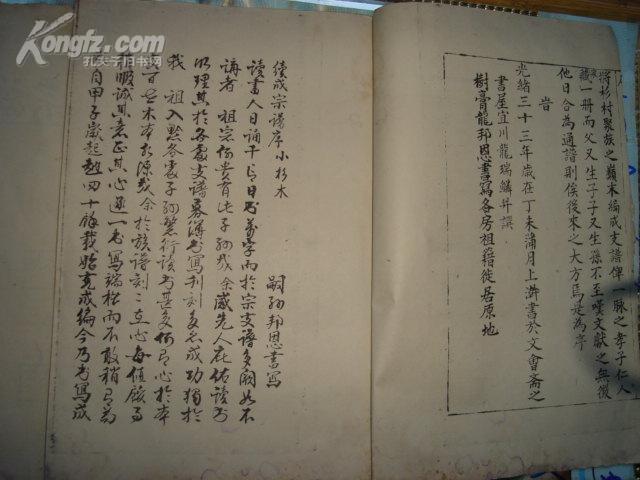 将杉村聚族之顛末编成支譜俾一脉之孝子仁人
藏一册而父又生子子又生孫不至嘆文獻之無徵
他日合為通譜則俟後來之大方焉是為序
旹
光緒三十三年歲在丁未蒲月上澣書於文會斋之
書屋宜川龍瑞麟幷撰
樹膏龍邦恩書寫各房祖籍徙居原地
續成宗譜序小杉木
嗣孙邦恩書寫
讀書人日誦千言日书萬字而於宗支譜多闕如不
講者 祖宗何貴有此子孙哉余蒙先人在佑讀书
明理其於各處支譜募簿书寫刊刻多名成功獨於
我 祖入黔各處子孙繁衍读书甚多何負心於本
木本水源哉余於族譜刻刻在心每值館
暇誠其意正其心逐一书寫端楷而不敢稍有為
自甲子歲起越四十餘載始克成编今乃书寫成
Kongfz.com
孔夫子旧书网